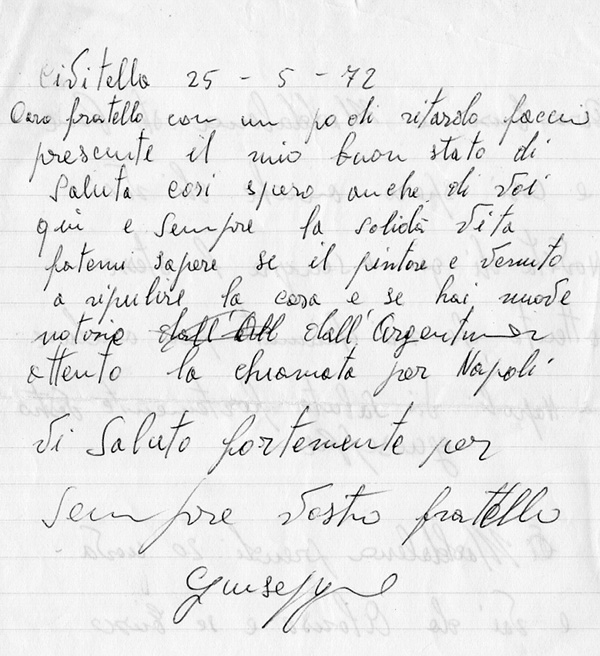 Civitella 25 - 5 - 72
Caro fratello con un po di ritardo faccio
presente il mio buon stato di
saluta cosi spero anche di voi
qui e sempre la solida vita
fatemi sapere se il pintore e venuto
a ripulire la casa e se hai nuove
notizie dall' dall'Argentina
attento la chiamata per Napoli
Vi Saluto fortemente per
Sempre vostro fratello
Giuseppe